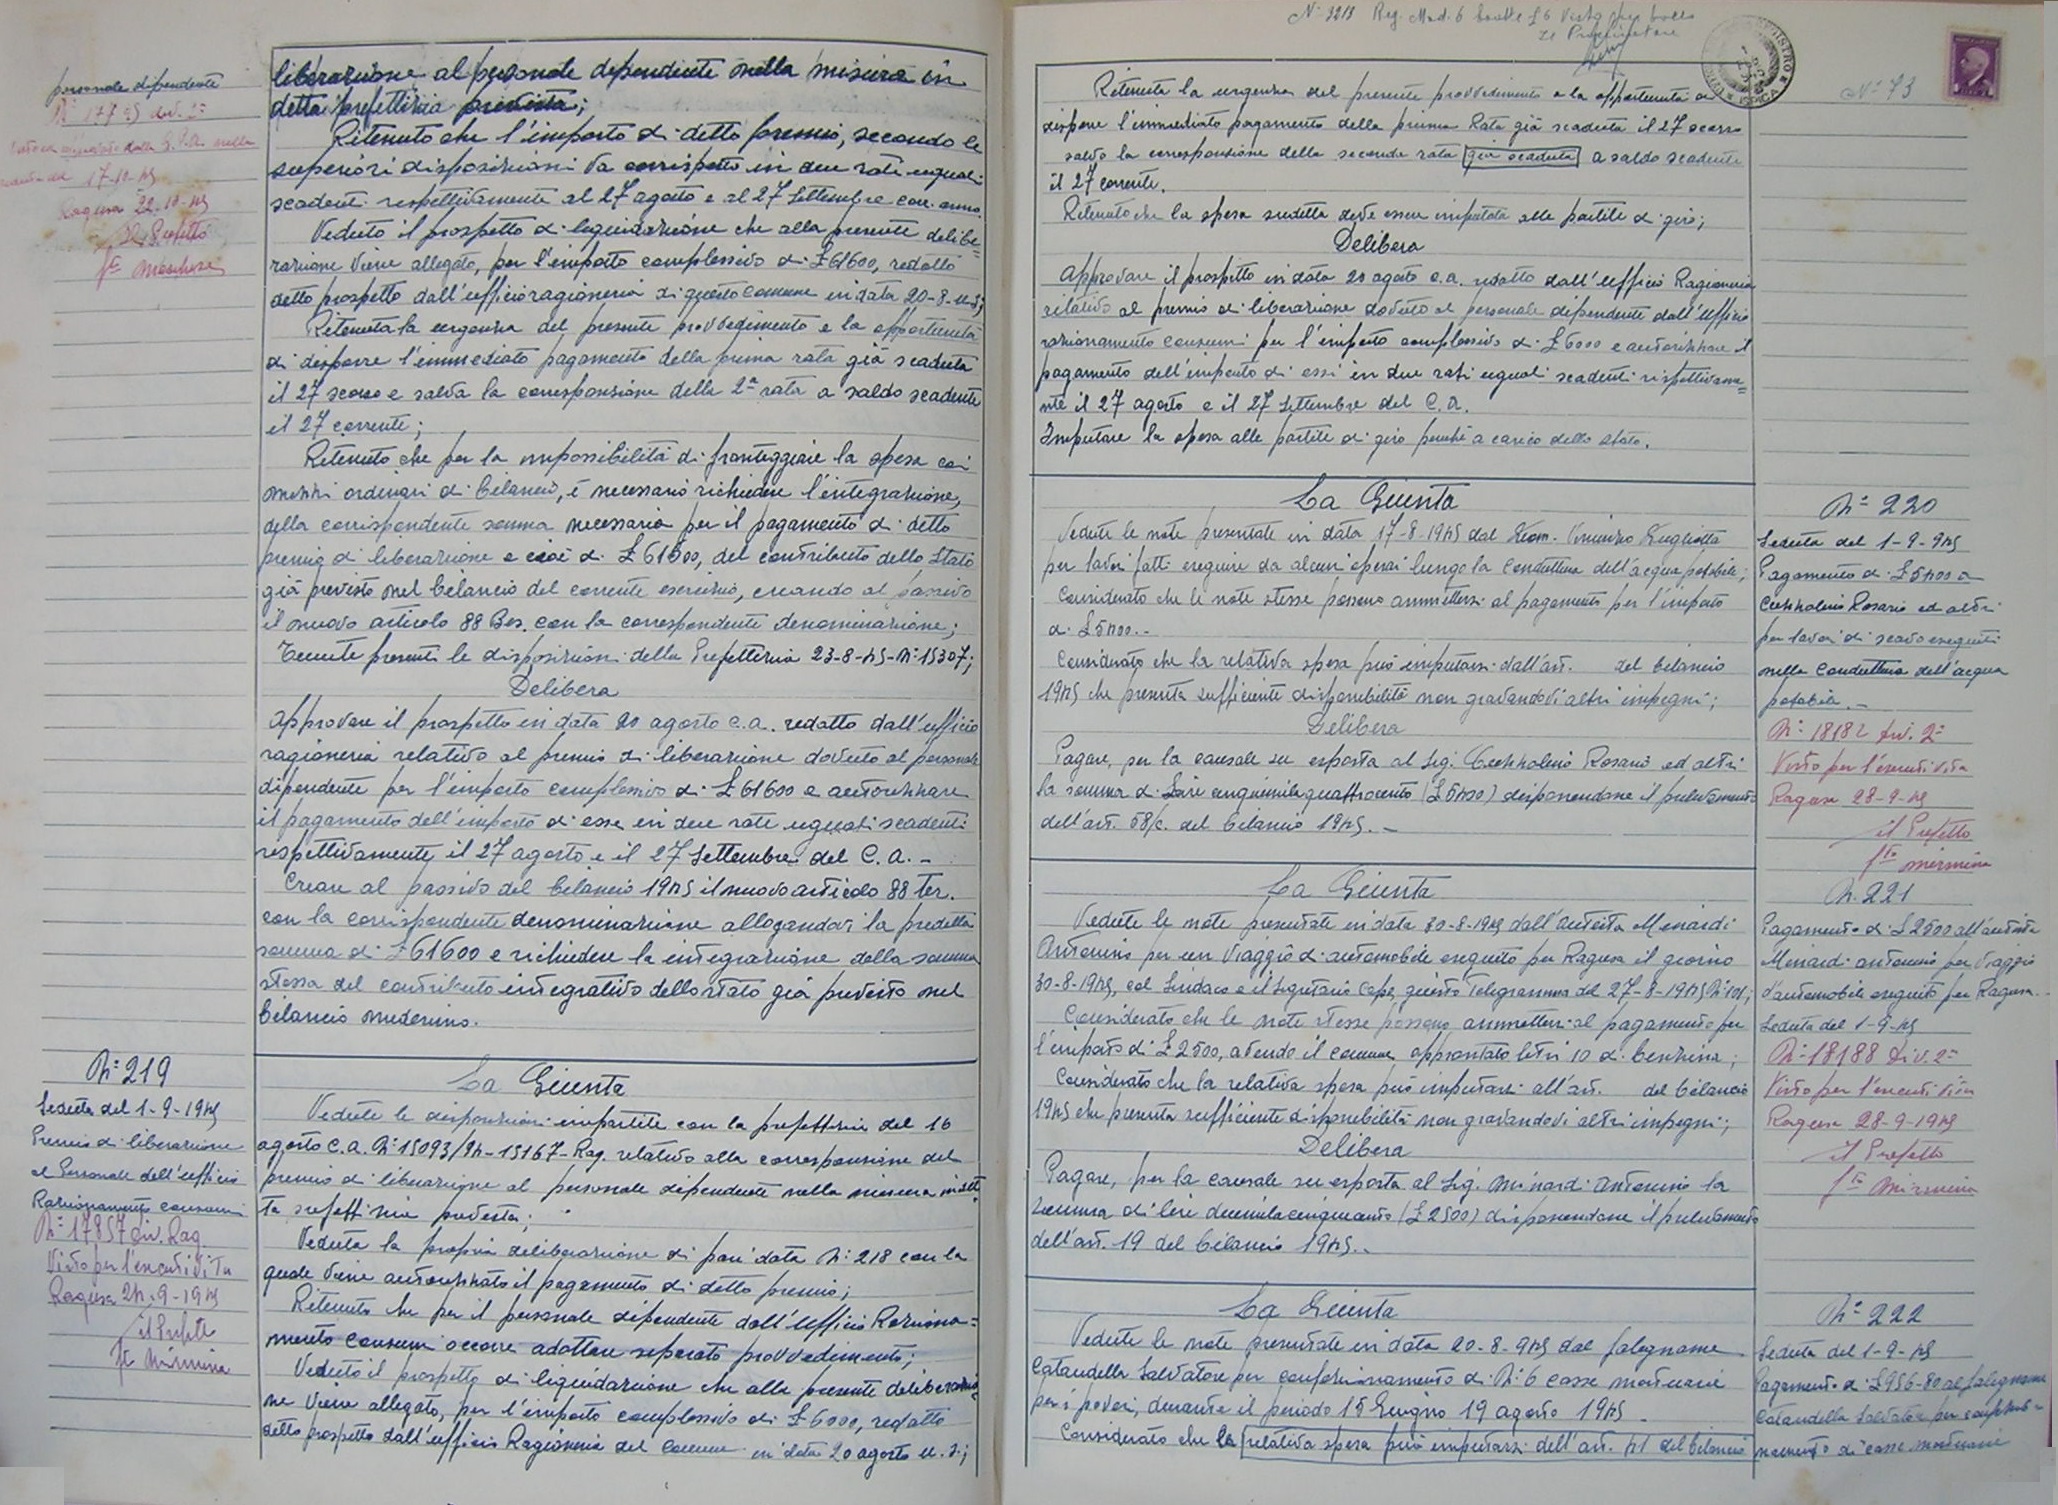 personale dipendente
N° 17795 div. 2ª
17-10-45
Ragusa 22-10-45
Il Prefetto
liberazione al personale dipendente nella misura in
detta prefettizia prevista;
Ritenuto che l'importo di detto premio, secondo le
superiori disposizioni va corrisposto in due rate uguali
scadenti rispettivamente al 27 agosto e al 27 Settembre corr. anno.
Veduto il prospetto di liquidazione che alla presente delibe=
razione viene allegato, per l'importo complessivo di £ 61600, redatto
detto prospetto dall'ufficio ragioneria di questo Comune in data 20-8-u.s;
Ritenuta la urgenza del presente provvedimento e la opportunità
di disporre l'immediato pagamento della prima rata già scaduta
il 27 scorso e salva la corresponsione della 2ª rata a saldo scadente
il 27 corrente;
Ritenuto che per la impossibilità di fronteggiare la spesa coi
mezzi ordinari di bilancio, è necessario richiedere l'integrazione,
della corrispondente somma necessaria per il pagamento di detto
premio di liberazione e cioè di £ 61600, del contributo dello Stato
già previsto nel bilancio del corrente esercizio, creando al passivo
il nuovo articolo 88 Bis. con la corrispondente denominazione;
Tenute presenti le disposizioni della Prefettizia 23-8-45-N° 15307;
Delibera
Approvare il prospetto in data 20 agosto c.a. redatto dall'ufficio
ragioneria relativo al premio di liberazione dovuto al personale
dipendente per l'importo complessivo di £ 61600 e autorizzare
il pagamento dell'importo di esse in due rate uguali scadenti
rispettivamente il 27 agosto e il 27 Settembre del C.A. -
Creare al passivo del bilancio 1945 il nuovo articolo 88 ter.
con la corrispondente denominazione allogandovi la predetta
somma di £ 61600 e richiedere la integrazione della somma
stessa del contributo integrativo dello stato già previsto nel
bilancio medesimo.
N° 219
Seduta del 1-9-1945
Premio di liberazione
al Personale dell'ufficio
Razionamento consumi
N° 17857 Div. Rag.
Visto per l'esecutività
Ragusa 24-9-1945
il Prefetto
fto Mirmina
La Giunta
Vedute le disposizioni impartite con la prefettizia del 16
agosto c.a. N° 15093/94-15167-Rag. relativo alla corresponsione del
premio di liberazione al personale dipendente nella misura in det
ta prefettizia prevista;
Veduta la propria deliberazione di pari data N° 218 con la
quale viene autorizzato il pagamento di detto premio;
Ritenuto che per il personale dipendente dall'Ufficio Raziona=
mento consumi occorre adottare separato provvedimento;
Veduto il prospetto di liquidazione che alla presente deliberazio
ne viene allegato, per l'importo complessivo di £ 6000, redatto
detto prospetto dall'ufficio Ragioneria del comune in data 20 agosto u.s.;
N° 3213 Reg. Mod. 6 £ 6 Visto per bollo
Il Procuratore
N° 73
Ritenuta la urgenza del presente provvedimento e la opportunità di
disporre l'immediato pagamento della prima Rata già scaduta il 27 scorso
salvo la corresponsione della seconda rata già scaduta a saldo scadente
il 27 corrente.
Ritenuto che la spesa suddetta deve essere imputata alle partite di giro;
Delibera
Approvare il prospetto in data 20 agosto c.a. redatto dall'ufficio Ragioneria
relativo al premio di liberazione dovuto al personale dipendente dall'ufficio
razionamento consumi per l'importo complessivo di £ 6000 e autorizzare il
pagamento dell'importo di essi in due rati uguali scadenti rispettivame=
nte il 27 agosto e il 27 Settembre del C.A.
Imputare la spesa alle partite di giro perché a carico dello Stato.
La Giunta
Vedute le note presentate in data 17-8-1945 dal Geom. Vincenzo
per lavori fatti eseguire da alcuni operai lungo la conduttura dell'acqua potabile;
Considerato che le note stesse possono ammettersi al pagamento per l'importo
di £ 5400.-
Considerato che la relativa spesa può imputarsi dall'art. del bilancio
1945 che presenta sufficiente disponibilità non gravandovi altri impegni;
Delibera
Pagare, per la causale su esposta al Sig. Rosario ed altri
la somma di Lire cinquemilaquattrocento (£ 5400) disponendone il prelevamento
dell'art. 58/c. del bilancio 1945.-
N° 220
Seduta del 1-9-945
Pagamento di £ 5400 a
Rosario ed altri
per lavori di scavo eseguiti
nella conduttura dell'acqua
potabile.-
N° 18182 Div. 2ª
Visto per l'esecutività
Ragusa 28-9-45
il Prefetto
fto Mirmina
La Giunta
Vedute le note presentate in data 30-8-1945 dall'autista Minardi
Antonino per un viaggio di automobile eseguito per Ragusa il giorno
30-8-1945, col Sindaco e il Segretario Capo, giusto Telegramma del 27-8-1945 N°
Considerato che le note stesse possono ammettersi al pagamento per
l'importo di £ 2500, avendo il comune approntato litri 10 di benzina;
Considerato che la relativa spesa può imputarsi all'art. del bilancio
1945 che presenta sufficiente disponibilità non gravandovi altri impegni;
Delibera
Pagare, per la causale su esposta al Sig. Minardi Antonino la
somma di lire duemilacinquecento (£ 2500) disponendone il prelevamento
dell'art. 19 del bilancio 1945.-
N. 221
Pagamento di £ 2500 all'autista
Minardi Antonino per viaggio
d'automobile eseguito per Ragusa.-
Seduta del 1-9-45
N° 18188 Div. 2ª
Visto per l'esecutività
Ragusa 28-9-1945
il Prefetto
fto Mirmina
La Giunta
Vedute le note presentate in data 20-8-945 dal falegname
Cataudella Salvatore per confezionamento di N° 6 casse mortuarie
per i poveri, durante il periodo 15 Giugno 19 agosto 1945.-
Considerato che la relativa spesa può imputarsi dell'art. 41 del bilancio
N° 222
Seduta del 1-9-45
Pagamento di £ 956-80 al falegname
Cataudella Salvatore per confezio=
namento di casse mortuarie